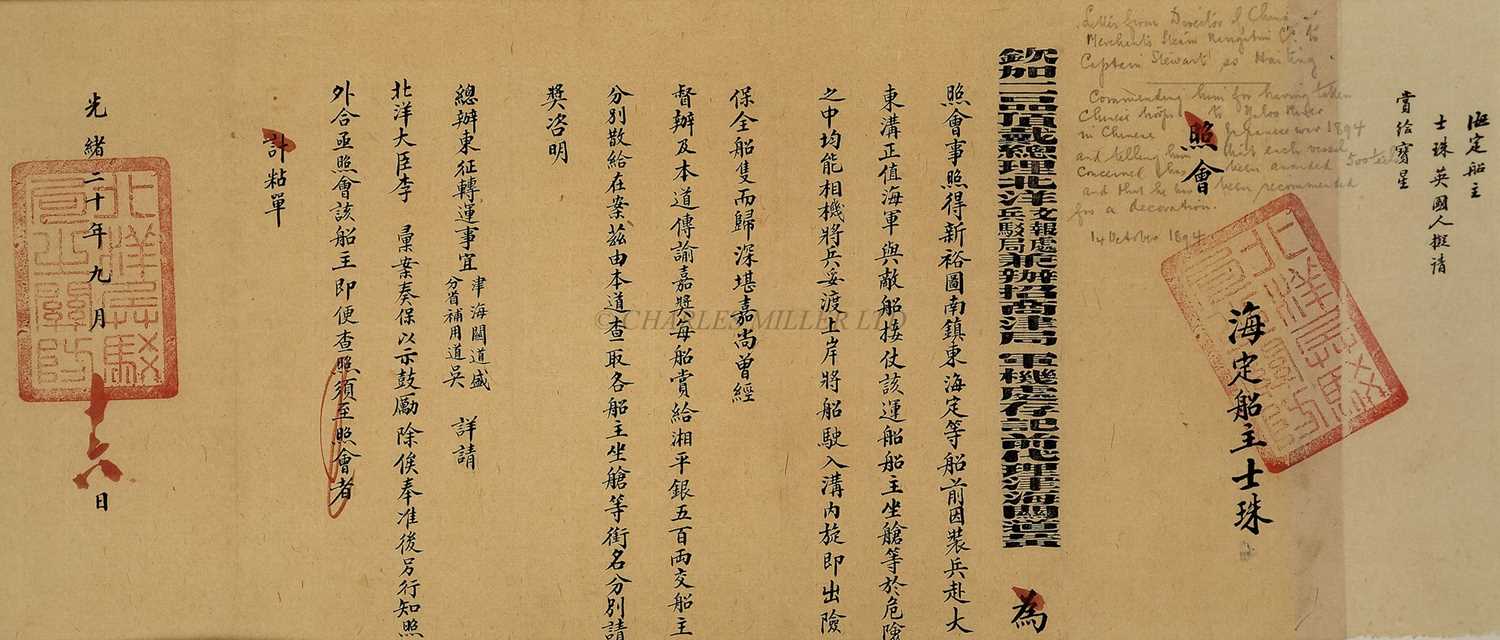 海定船主
士珠英國人擬請
賞給寶星
Letter from Director of China
Merchants Steam Navigation Co. to
Captain Stewart ss Haiting.
Commending him for having taken
Chinese troops to Yaloo River
in Chinese Japanese war 1894
and telling him that each vessel
concerned has been awarded 500 taels
and that he has been recommended
for a decoration.
14 October 1894
海定船主士珠
照會
欽加二品頂戴總理北洋文報處兵駁局兼辦招商津局 軍機處存記前代理津海關道黃
為
照會事照得新裕圖南鎮東海定等船前因裝兵赴大
東溝正值海軍與敵船接仗該運船船主坐艙等於危險
之中均能相機將兵妥渡上岸將船駛入溝內旋即出險
保全船隻而歸深堪嘉尚曾經
督辦及本道傳諭嘉獎每船賞給湘平銀五百両交船主
分別散給在案茲由本道查取各船主坐艙等銜名分別請
獎咨明
總辦東征轉運事宜津海關道盛分省補用道吳 詳請
北洋大臣李 彙案奏保以示鼓勵除俟奉准後另行知照
外合亟照會該船主即便查照須至照會者
計粘單
光緒二十年九月十六日
© CHARLES MILLER LTD